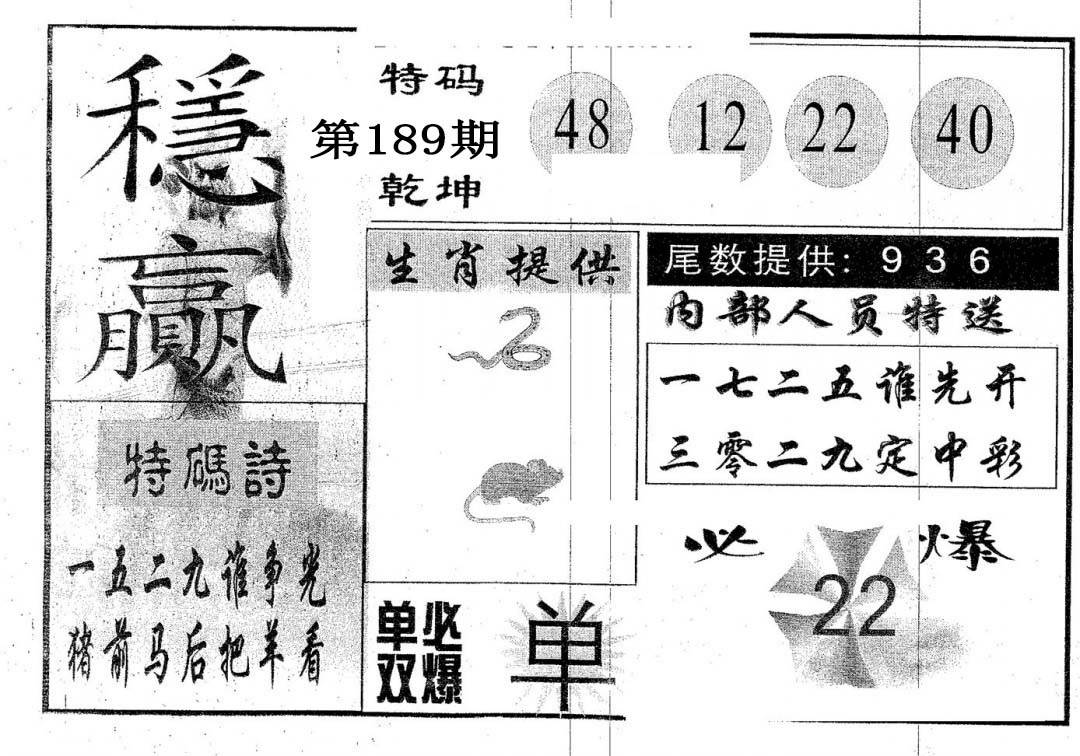 穩
贏
特码
第189期
乾坤
48 12 22 40
生肖提供
尾数提供: 9 3 6
内部人员特送
一七二五谁先开
三零二九定中彩
特碼詩
一五二九谁争光
猪前马后把羊看
单双
必爆
单
必 22 爆